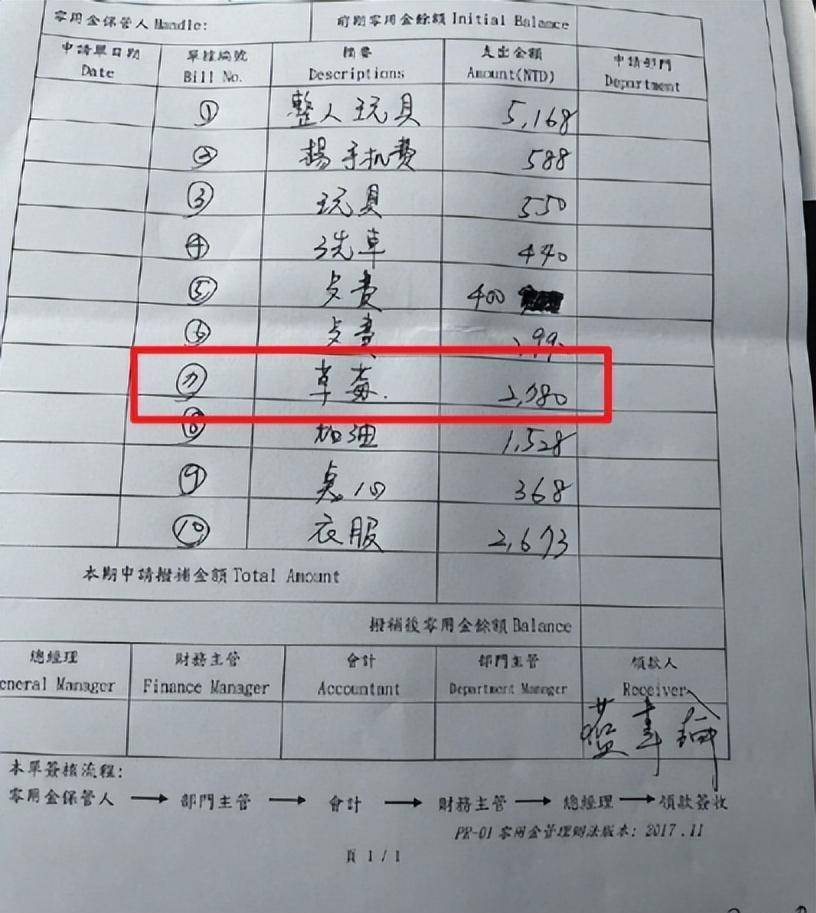 零用金保管人 Handle: 前期零用金餘額 Initial Balance
申請單日期 Date 單據編號 Bill No. 摘要 Descriptions 支出金額 Amount(NTD) 申請部門 Department
① 整人玩具 5,168
② 楊手机費 588
③ 玩具 550
④ 洗車 440
⑤ 点費 400
⑥ 点費
⑦ 草莓. 2,780
⑧ 加油 1,528
⑨ 点心 368
⑩ 衣服 2,673
本期申請撥補金額 Total Amount
撥補後零用金餘額 Balance
總經理 財務主管 會計 部門主管 領款人
eneral Manager Finance Manager Accountant Department Manager Receiver
本單簽核流程:
零用金保管人 → 部門主管 → 會計 → 財務主管 → 總經理 → 領款簽收
PR-01 零用金管理辦法版本: 2017.11
頁 1 / 1